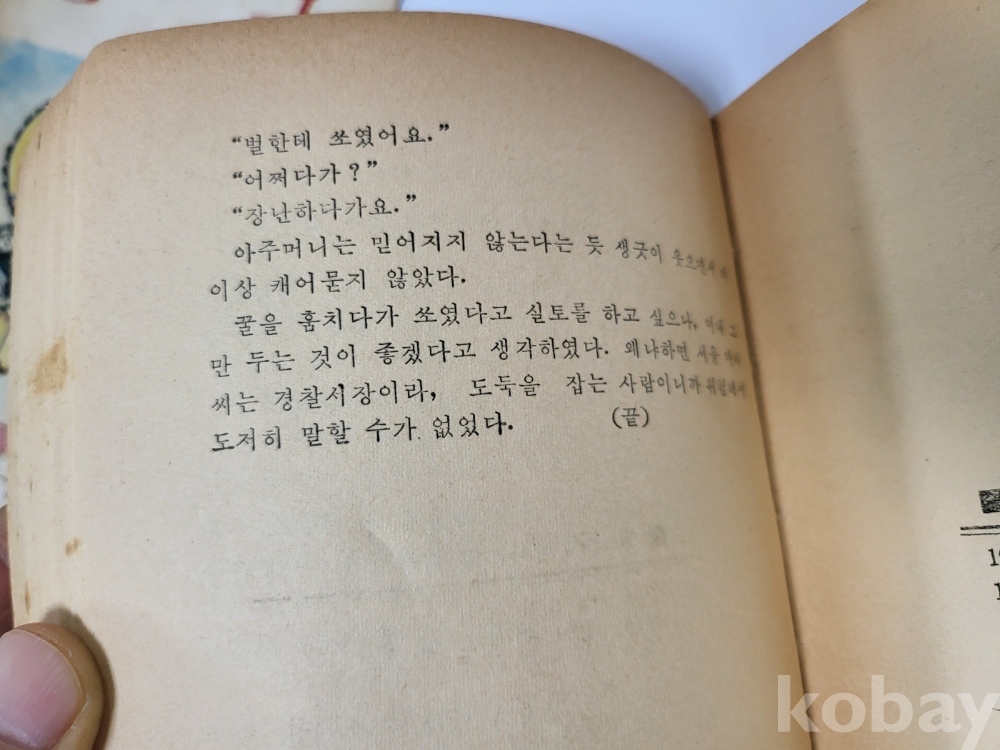 “벌한데 쏘였어요.”
“어쩌다가?”
“장난하다가요.”
아주머니는 믿어지지 않는다는 듯 생긋이 웃으면서
이상 캐어묻지 않았다.
꿀을 훔치다가 쏘였다고 실토를 하고 싶으나,
만 두는 것이 좋겠다고 생각하였다. 왜냐하면 서울
씨는 경찰서장이라, 도둑을 잡는 사람이니까
도저히 말할 수가 없었다. (끝)
kobay